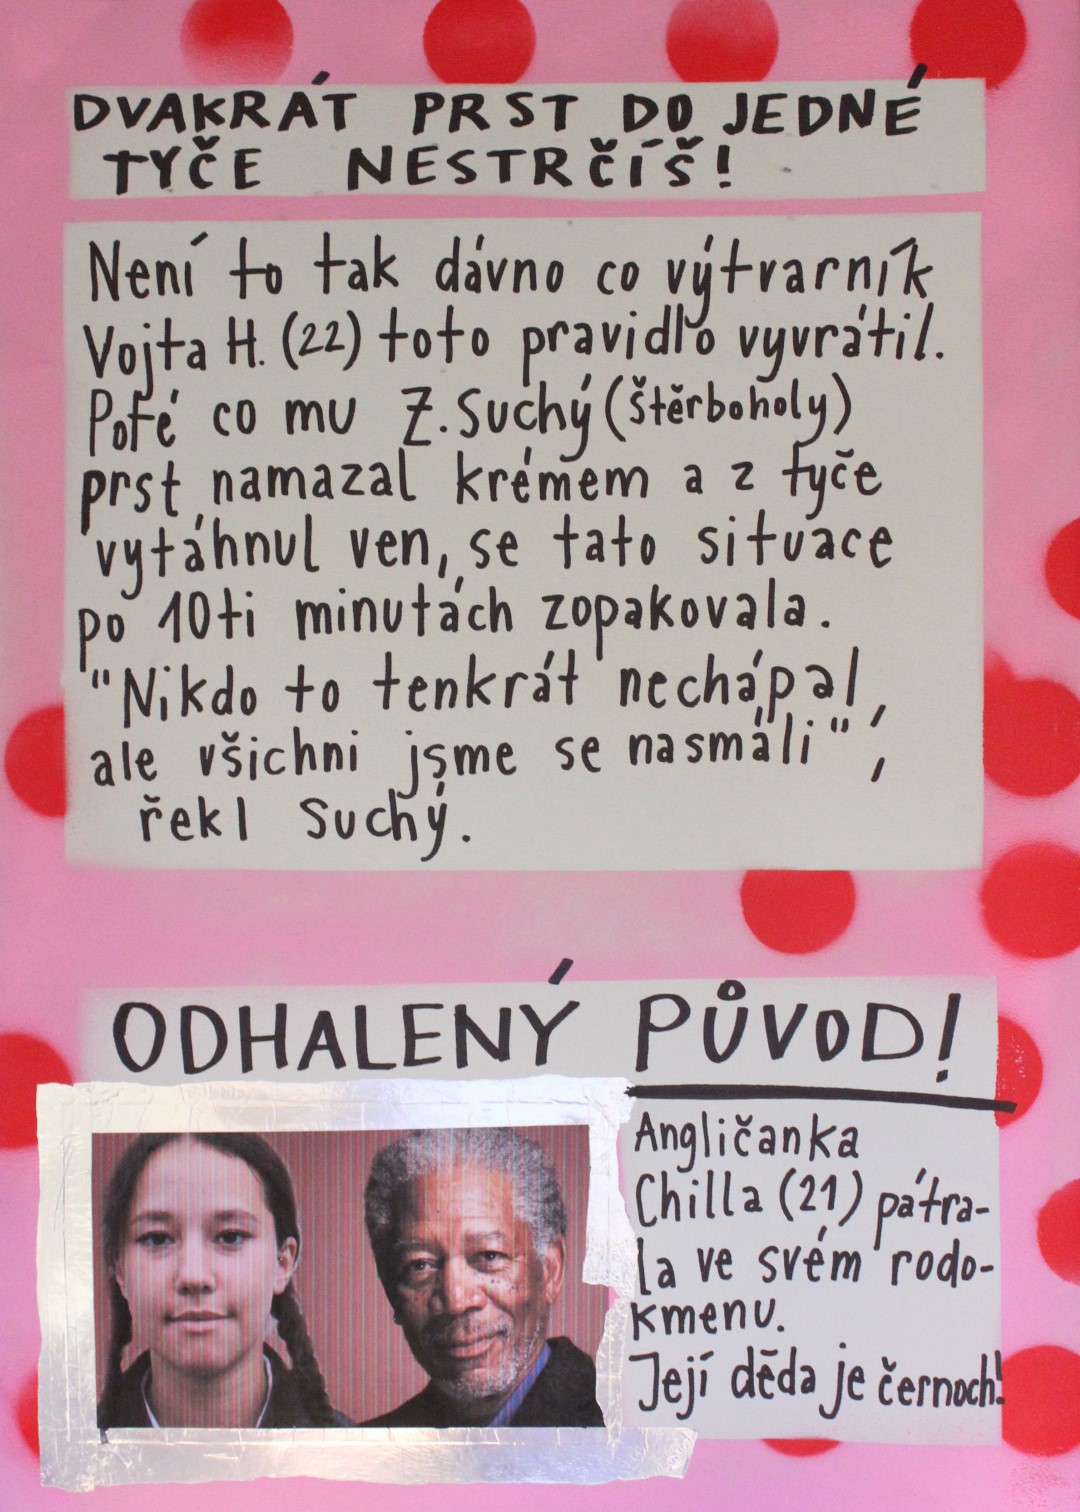 DVAKRÁT PRST DO JEDNÉ
TYČE NESTRČÍŠ!
Není to tak dávno co výtvarník
Vojta H. (22) toto pravidlo vyvrátil.
Poté co mu Z. Suchý (štěrboholy)
prst namazal krémem a z tyče
vytáhnul ven, se tato situace
po 10ti minutách zopakovala.
"Nikdo to tenkrát nechápal,
ale všichni jsme se nasmáli",
řekl Suchý.
ODHALENÝ PŮVOD!
Angličanka
Chilla (21) pátra-
la ve svém rodo-
kmenu.
Její děda je černoch!